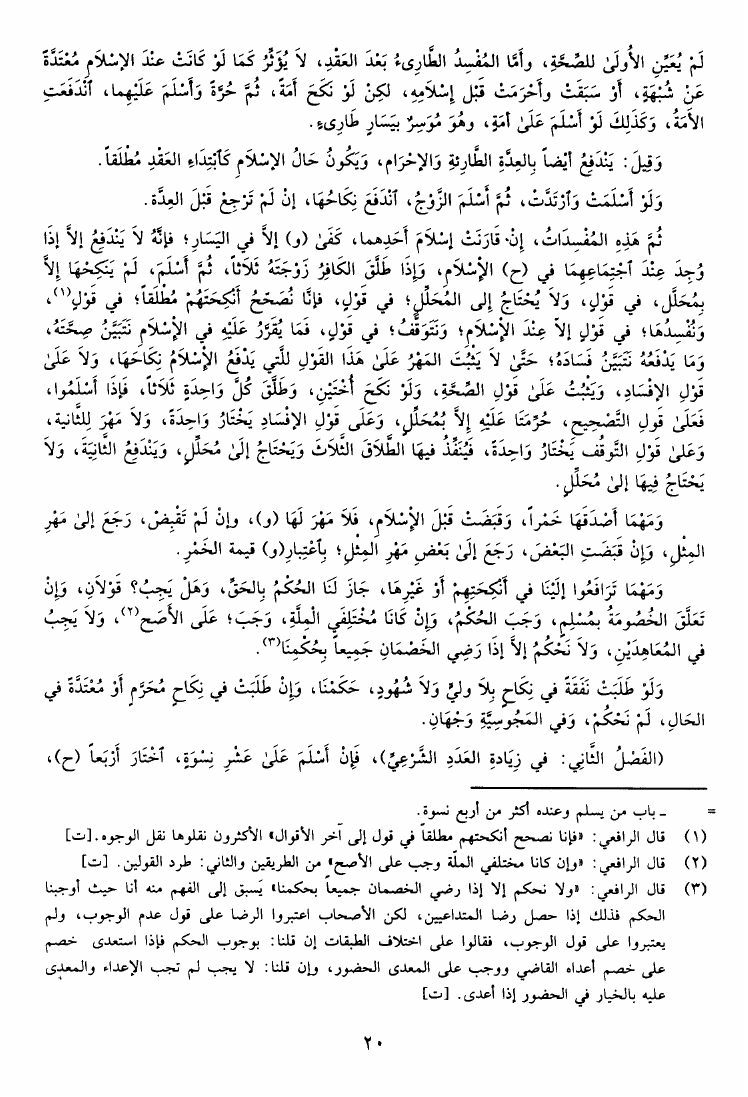 لَمْ يُعَيِّنِ الأُولَىٰ للصِّحَّةِ، وأَمَّا المُفْسِدُ الطَّارِىءُ بَعْدَ العَقْدِ، لاَ يُؤَثِّرُ كَمَا لَوْ كَانَتْ عِنْدَ الإسْلاَمِ مُعْتَدَّةً
عَنْ شُبْهَةٍ، أَوْ سَبَقَتْ وأَحْرَمَتْ قَبْلَ إِسْلاَمِهِ، لكِنْ لَوْ نَكَحَ أَمَةً، ثُمَّ حُرَّةً وَأَسْلَمَ عَلَيْهِما، ٱنْدَفَعَتِ
الأَمَةُ، وَكَذَلِكَ لَوْ أَسْلَمَ عَلَىٰ أَمَةٍ، وهُوَ مُوَسِرٌ بيَسَارٍ طَارِىءٍ.
وَقِيلَ: يَنْدَفِعُ أيْضاً بالعِدَّةِ الطَّارِئَةِ وَالإحْرَامِ، وَيَكُونُ حَالُ الإسْلاَمِ كَٱبْتِدَاءِ العَقْدِ مُطْلَقاً.
وَلَوْ أَسْلَمَتْ وَٱرْتَدَّتْ، ثُمَّ أَسْلَمَ الزَّوْجُ، ٱنْدَفَعَ نِكَاحُهَا، إنْ لَمْ تَرْجِعْ قَبْلَ العِدَّةِ.
ثُمَّ هَذِهِ المُفْسِدَاتُ، إِنْ قَارَنَتْ إسْلاَمَ أَحَدِهِما، كَفَىٰ (و) إلاَّ في اليَسَارِ؛ فإنَّهُ لاَ يَنْدَفِعُ إلاَّ إذَا
وُجِدَ عِنْدَ ٱجْتِمَاعِهِمَا في (ح) الإسْلاَمِ، وَإِذَا طَلَّقَ الكَافِرُ زَوْجَتَهُ ثَلاَثاً، ثُمَّ أَسْلَمَ، لَمْ يَنْكِحْهَا إلاَّ
بِمُحَلِّلٍ، في قَوْلٍ، وَلاَ يُحْتَاجُ إلى المُحَلِّلِ؛ في قَوْلٍ، فإنَّا نُصَحِّحُ أَنْكِحَتَهُمْ مُطْلَقاً؛ في قَوْلٍ(١)،
وَنُفْسِدُهَا؛ في قَوْلٍ إلاَّ عِنْدَ الإسْلاَمِ؛ وَنَتَوَقَّفُ؛ في قَوْلٍ، فَمَا يُقَرَّرُ عَلَيْهِ في الإسْلاَمِ نَتَبَيَّنُ صِحَّتَهُ،
وَمَا يَدْفَعُهُ نَتَبَيَّنُ فَسَادَهُ؛ حَتَّىٰ لاَ يَثْبُتَ المَهْرُ عَلَىٰ هَذَا القَوْلِ للَّتي يَدْفَعُ الإسْلاَمُ نِكَاحَهَا، وَلاَ عَلَىٰ
قَوْلِ الإفْسَادِ، وَيَثْبُتُ عَلَىٰ قَوْلِ الصِّحَّةِ، وَلَوْ نَكَحَ أُخْتَيْنِ، وَطَلَّقَ كُلَّ وَاحِدَةٍ ثَلاَثاً، فَإِذَا أَسْلَمُوا،
فَعَلَىٰ قَولِ التَّصْحِيحِ، حُرِّمَتَا عَلَيْهِ إلاَّ بُمُحَلِّلٍ، وَعَلَى قَوْلِ الإفْسَادِ يَخْتَارُ وَاحِدَةً، وَلاَ مَهْرَ لِلثَّانية،
وَعَلىٰ قَوْلِ التَّوقُّفِ يَخْتَارُ وَاحِدَةً، فَيُنَفِّذُ فيهَا الطَّلاَقَ الثَّلاَثَ وَيَحْتَاجُ إلَىٰ مُحَلِّلٍ، وَيَنْدَفِعُ الثَّانِيَةَ، وَلاَ
يَحْتَاجُ فِيهَا إلىٰ مُحَلِّلٍ.
وَمَهْمَا أَصْدَقَهَا خَمْراً، وَقَبَضَتْ قَبْلَ الإسْلاَمِ، فَلاَ مَهْرَ لَهَا (و)، وإنْ لَمْ تَقْبِضْ، رَجَعَ إلىٰ مَهْرِ
المِثْلِ، وَإنْ قَبَضَتِ البَعْضَ، رَجَعَ إلَىٰ بَعْضِ مَهْرِ المِثْلِ؛ بِٱعْتِبارِ(و) قيمة الخَمْرِ.
وَمَهْمَا تَرَافَعُوا إلَيْنَا في أَنْكِحَتِهِمْ أَوْ غَيْرِهَا، جَازَ لَنَا الحُكْمُ بِالحَقِّ، وَهَلْ يَجِبُ؟ قَوْلاَنِ، وَإنْ
تَعَلَّقَ الخُصُومَةُ بمُسْلِمٍ، وَجَبَ الحُكْمُ، وَإنْ كَانَا مُخْتَلِفَي الْمِلَّةِ، وَجَبَ؛ عَلَى الأَصَحِّ(٢)، وَلاَ يَجِبُ
في المُعَاهِدَيْنِ، وَلاَ نَحْكُمُ إلاَّ إِذَا رَضِي الخَصْمَانِ جَمِيعاً بِحُكْمِنَا(٣).
وَلَوْ طَلَبَتْ نَفَقَةً في نِكَاحٍ بِلاَ وليٍّ وَلاَ شُهُودٍ، حَكَمْنَا، وَإنْ طَلَبَتْ في نِكَاحٍ مُحَرَّمٍ أَوْ مُعْتَدَّةً في
الحَالِ، لَمْ نَحْكُمْ، وَفي المَجُوسِيَّةِ وَجْهَانِ.
(الفَصْلُ الثَّانِي: في زِيَادَةِ العَدَدِ الشَّرْعِيِّ)، فَإنْ أَسْلَمَ عَلَىٰ عَشْرِ نِسْوَةٍ، ٱخْتَارَ أَرْبَعاً (ح)،
= ـ باب من يسلم وعنده أكثر من أربع نسوة.
(١) قال الرافعي: «فإنا نصحح أنكحتهم مطلقاً في قول إلى آخر الأقوال» الأكثرون نقلوها نقل الوجوه.[ت]
(٢) قال الرافعي: «وإن كانا مختلفي الملّة وجب على الأصح» من الطريقين والثاني: طرد القولين. [ت]
(٣) قال الرافعي: «ولا نحكم إلا إذا رضي الخصمان جميعاً بحكمنا» يَسبق إلى الفهم منه أنا حيث أوجبنا
الحكم فذلك إذا حصل رضا المتداعيين، لكن الأصحاب اعتبروا الرضا على قول عدم الوجوب، ولم
يعتبروا على قول الوجوب، فقالوا على اختلاف الطبقات إن قلنا: بوجوب الحكم فإذا استعدى خصم
على خصم أعداه القاضي ووجب على المعدى الحضور، وإن قلنا: لا يجب لم تجب الإعداء والمعدى
عليه بالخيار في الحضور إذا أعدى. [ت]
٢٠